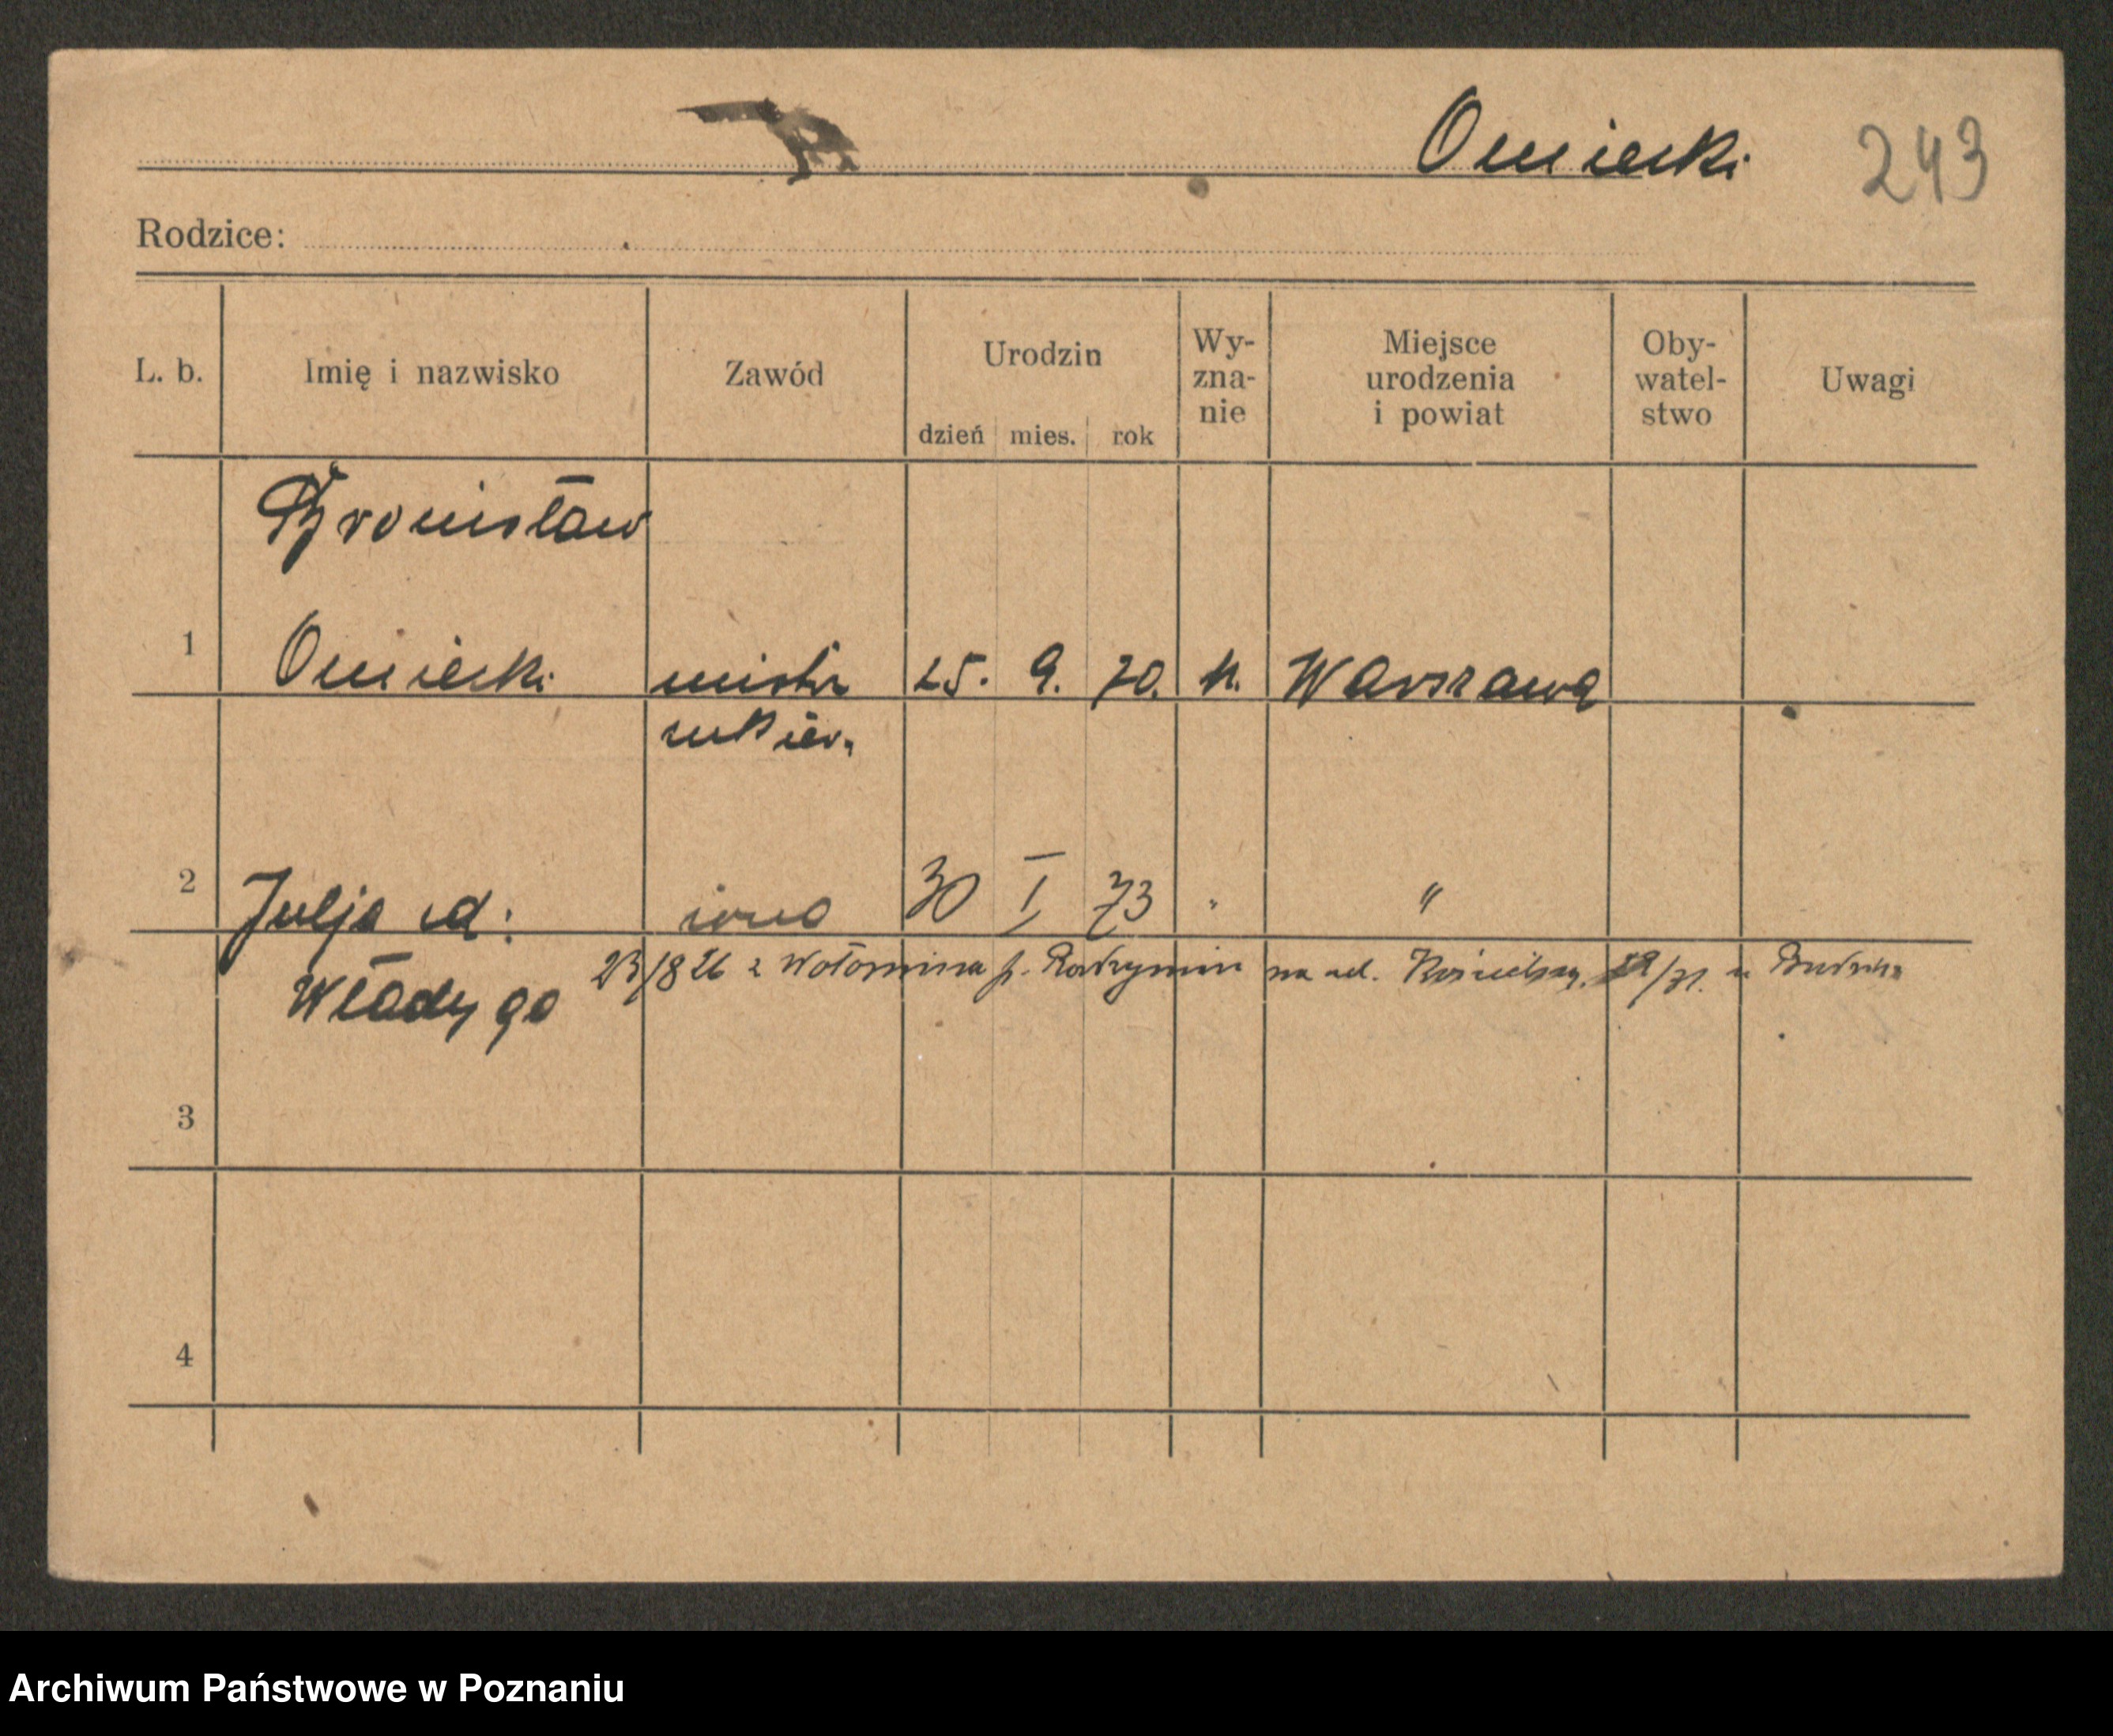 Omiecki 243
Rodzice:
L. b. Imię i nazwisko Zawód Urodzin dzień mies. rok Wy-zna-nie Miejsce urodzenia i powiat Oby-watel-stwo Uwagi
Bronisław
1 Omiecki mistrz 25. 9. 70. k. Warszawa
cukier.
2 Julja z d: żona 30 I 73 " "
23/8 26 z Wołomina p. Radzymin na ul.
Władygo
3
4
Archiwum Państwowe w Poznaniu